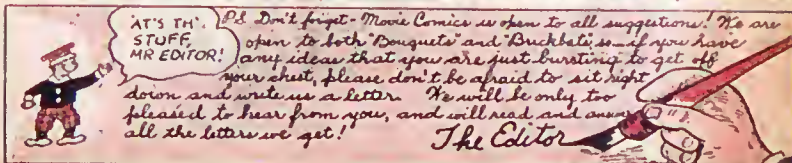 'AT'S TH'
STUFF,
MR EDITOR!
P.S. Don't forget - Movie Comics is open to all suggestions! We are
open to both "Bouquets" and "Brickbats", so - if you have
any ideas that you are just bursting to get off
your chest, please don't be afraid to sit right
down and write us a letter. We will be only too
pleased to hear from you, and will read and answer
all the letters we get!
The Editor